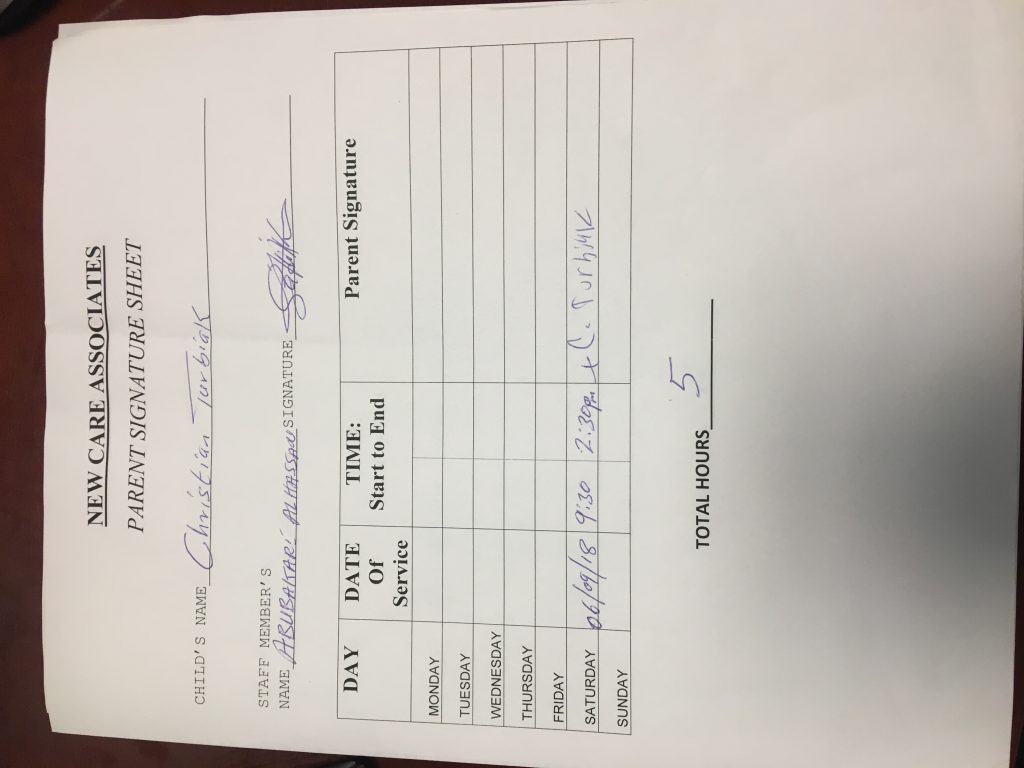 NEW CARE ASSOCIATES
PARENT SIGNATURE SHEET
CHILD'S NAME Christian Turbiak
STAFF MEMBER'S
NAME ABUBAKARI ALHASSAN SIGNATURE Sadik
DAY DATE Of Service TIME: Start to End Parent Signature
MONDAY
TUESDAY
WEDNESDAY
THURSDAY
FRIDAY
SATURDAY 06/09/18 9:30 2:30pm x C. Turbiak
SUNDAY
TOTAL HOURS 5